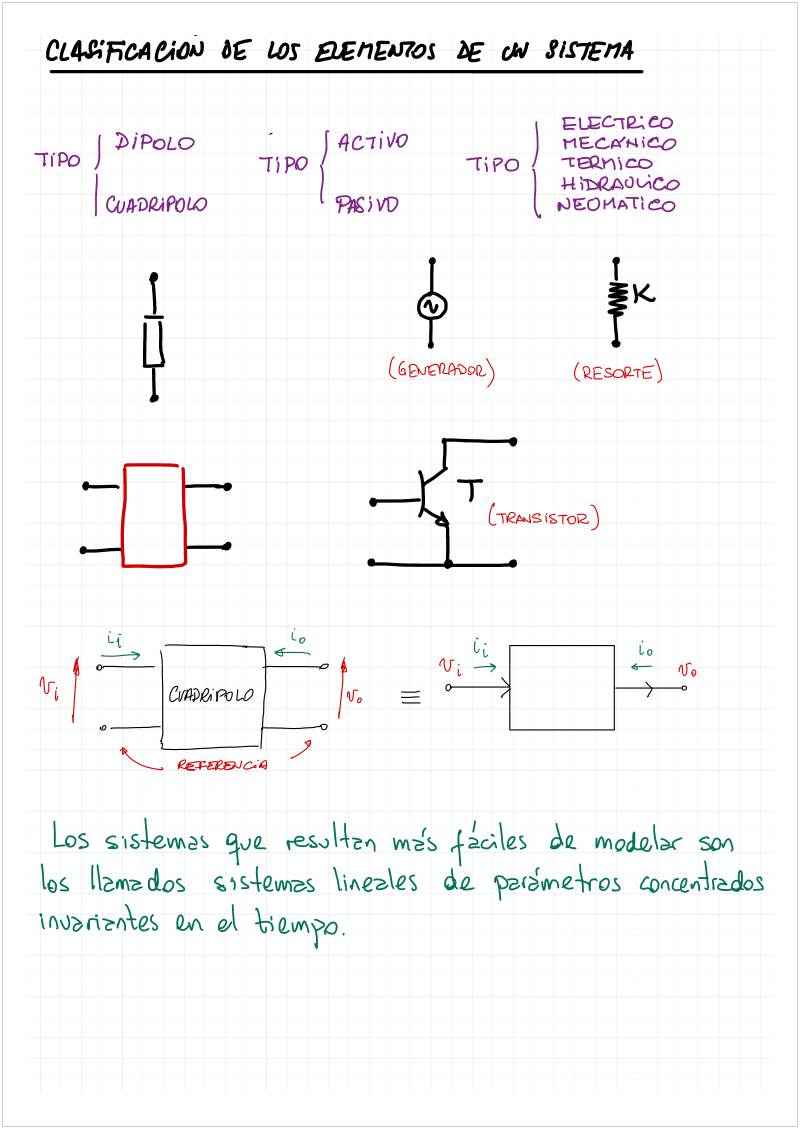 CLASIFICACION DE LOS ELEMENTOS DE UN SISTEMA
TIPO DIPOLO CUADRIPOLO
TIPO ACTIVO PASIVO
TIPO ELECTRICO MECÁNICO TERMICO HIDRAULICO NEOMATICO
K
(GENERADOR)
(RESORTE)
T
(TRANSISTOR)
ii
io
vi
CUADRIPOLO
vo
REFERENCIA
≡
vi
ii
io
vo
Los sistemas que resultan más fáciles de modelar son
los llamados sistemas lineales de parámetros concentrados
invariantes en el tiempo.